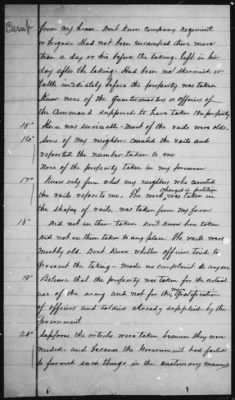 from my house. Dont know company regiment
or brigade. Had not been encamped there more
than a day or two before the taking. left in two
day after the taking. Had been no skirmish or
battle immediately before the property was taken
Know none of the Quartermasters or officers of
the command supposed to have taken the property
15" Rails was serviceable - Most of the rails were old.
16" Some of my neighbors counted the rails and
reported the number taken to me
None of the property taken in my presence
17" Know only from what my neighbor who counted
the rails reports to me. The wood charged in petition
was taken in
the shape of rails. was taken from my farm
18" Did not see them taken. Dont know how taken
did not see them taken to any place. The rails were
mostly old. Dont know whether officers tried to
prevent the taking - made no complaint to anyone
19" Believe that the property was taken for the actual
use of the army and not for the gratification
of officers and soldiers already supplied by the
Government
20" Suppose the articles were taken because they were
needed and because the Government had failed
to furnish such things in the customary manner